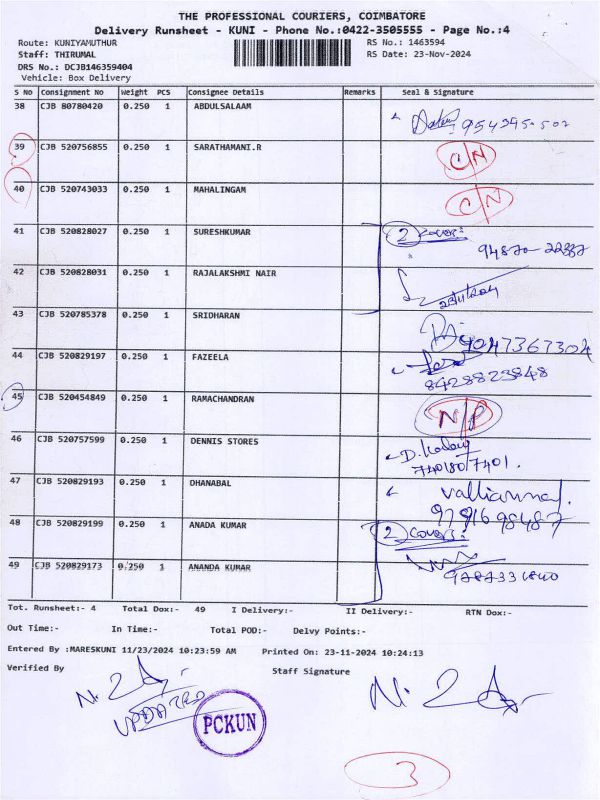 THE PROFESSIONAL COURIERS, COIMBATORE
Delivery Runsheet - KUNI - Phone No.:0422-3505555 - Page No.:4
Route: KUNIYAMUTHUR RS No.: 1463594
Staff: THIRUMAL RS Date: 23-Nov-2024
DRS No.: DCJB146359404
Vehicle: Box Delivery
S NO Consignment No Weight PCS Consignee Details Remarks Seal & Signature
38 CJB 80780420 0.250 1 ABDULSALAAM
39 CJB 520756855 0.250 1 SARATHAMANI.R C/N
40 CJB 520743033 0.250 1 MAHALINGAM C/N
41 CJB 520828027 0.250 1 SURESHKUMAR 2 Covers
94870-22337
42 CJB 520828031 0.250 1 RAJALAKSHMI NAIR
43 CJB 520785378 0.250 1 SRIDHARAN
9047367304
44 CJB 520829197 0.250 1 FAZEELA
8428823848
45 CJB 520454849 0.250 1 RAMACHANDRAN N/P
46 CJB 520757599 0.250 1 DENNIS STORES
7401807401.
47 CJB 520829193 0.250 1 DHANABAL Valliammal.
9791698487
48 CJB 520829199 0.250 1 ANADA KUMAR 2 Covers
49 CJB 520829173 0.250 1 ANANDA KUMAR 9787331840
Tot. Runsheet:- 4 Total Dox:- 49 I Delivery:- II Delivery:- RTN Dox:-
Out Time:- In Time:- Total POD:- Delvy Points:-
Entered By :MARESKUNI 11/23/2024 10:23:59 AM Printed On: 23-11-2024 10:24:13
Verified By Staff Signature
UPDATED
PCKUN
3